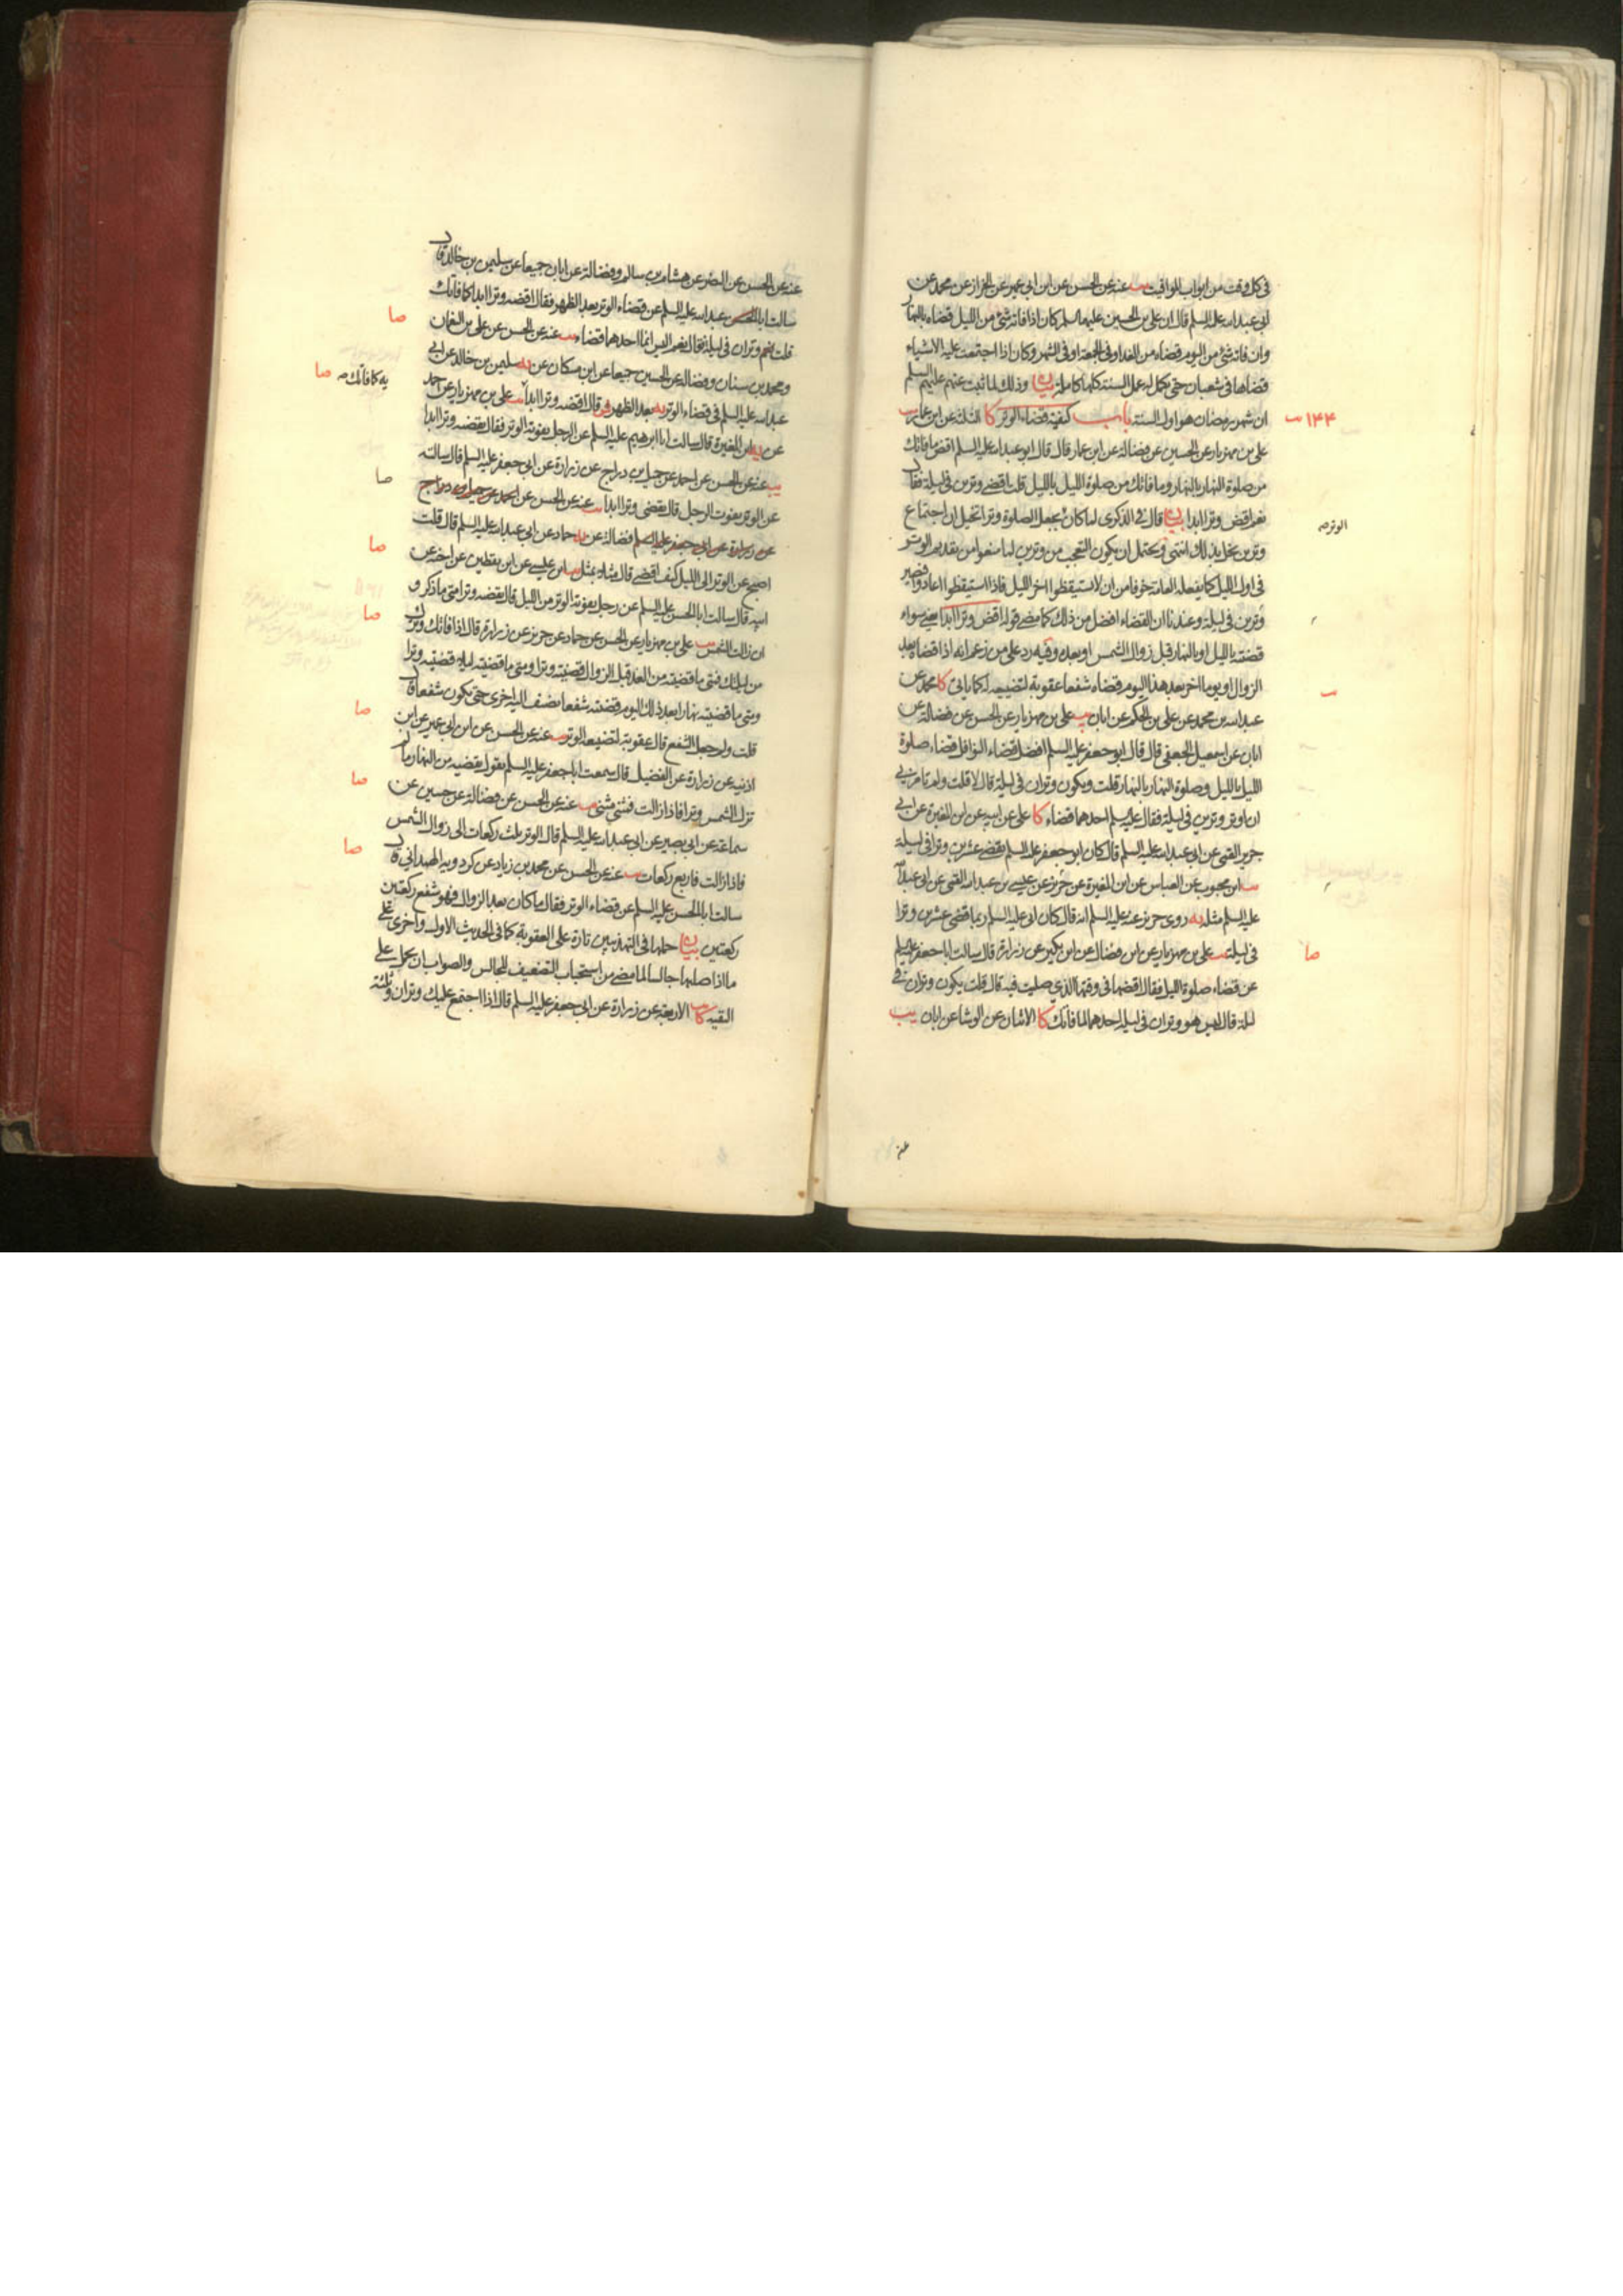 في كل وقت من ابواب المواقيت يب عنه عن الحسن عن ابن ابي عمير عن الخراز عن محمد عن
ابي عبد الله عليه السلم قال ان علي بن الحسين عليهما السلم كان اذا فاته شئ من الليل قضاه بالنهار
وان فاته شئ من اليوم قضاه من الغد او في الجمعة او في الشهر وكان اذا اجتمعت عليه الاشياء
قضاها في شعبان حتى يكمل له عمل السنة كلها كاملة بيان وذلك لما ثبت عنهم عليهم السلم
ان شهر رمضان هو اول السنة باب كيفية قضاء الوتر كا الثلثة عن ابن عمار يب
۱۴۴
علي بن مهزيار عن الحسين عن فضالة عن ابن عمار قال قال ابو عبد الله عليه السلم اقض ما فاتك
من صلوة النهار بالنهار وما فاتك من صلوة الليل بالليل قلت اقضي وترين في ليلة فقال
نعم اقض وترا ابدا بيان قال في الذكرى لما كان يجعل الصلوة وترا تخيل ان اجتماع
الوتر صه
وترين يخل بذلك انتهى ويحتمل ان يكون التعجب من وترين لما منعوا من تقديم الوتر
في اول الليل كما يفعله العامة خوفا من ان لا يستيقظوا اخر الليل فاذا استيقظوا اعادوا فيصير
وترين في ليلة وعندنا ان القضاء افضل من ذلك كما مضى قوله اقض وترا ابدا يعني سواء
قضيته بالليل او بالنهار قبل زوال الشمس او بعده وفيه رد على من زعم انه اذا قضاه بعد
الزوال او يوما اخر بعد هذا اليوم قضاه شفعا عقوبة لتضييعه له كما ياتي كا محمد عن
عبد الله بن محمد عن علي بن الحكم عن ابان يب علي بن مهزيار عن الحسن عن فضالة عن
ابان عن اسمعيل الجعفي قال قال ابو جعفر عليه السلم افضل قضاء النوافل قضاء صلوة
الليل بالليل وصلوة النهار بالنهار قلت ويكون وتران في ليلة قال لا قلت ولم تامرني
ان اوتر وترين في ليلة فقال عليه السلم احدهما قضاء كا علي عن ابيه عن ابن المغيرة عن ابي
جرير القمي عن ابي عبد الله عليه السلم قال كان ابو جعفر عليه السلم يقضي عشرين وترا في ليلة
يب ابن محبوب عن العباس عن ابن المغيرة عن حريز عن عيسى بن عبد الله القمي عن ابي عبد الله
عليه السلم مثله يه روى حريز عنه عليه السلم انه قال كان ابي عليه السلم ربما قضى عشرين وترا
في ليلة يب علي بن مهزيار عن ابن فضال عن ابن بكير عن زرارة قال سالت ابا جعفر عليه السلم
صا
عن قضاء صلوة الليل فقال اقضها في وقتها الذي صليت فيه قال قلت يكون وتران في
ليلة قال ليس هو وتران في ليلة احدهما لما فاتك كا الاثنان عن الوشا عن ابان يب
عنه
عنه عن الحسن عن النضر عن هشام بن سالم وفضالة عن ابان جميعا عن سليمن بن خالد قال
سالت ابا عبد الله عليه السلم عن قضاء الوتر بعد الظهر فقال اقضه وترا ابدا كما فاتك
صا
قلت وتران في ليلة فقال نعم اليس انما احدهما قضاء يب عنه عن الحسن عن علي بن النعمان
ومحمد بن سنان وفضالة عن الحسين جميعا عن ابن مسكان عن سليمن بن خالد عن ابي
يه كما فاتك صه صا
عبد الله عليه السلم في قضاء الوتر بعد الظهر قال اقضه وترا ابدا يب علي بن مهزيار عن
عن ابن المغيرة قال سالت ابا ابرهيم عليه السلم عن الرجل يفوته الوتر فقال يقضه وترا ابدا
يب عنه عن الحسن عن احمد عن جميل بن دراج عن زرارة عن ابي جعفر عليه السلم قال سالته
صا
عن الوتر يفوت الرجل قال يقضي وترا ابدا يب عنه عن الحسن عن احمد عن جميل بن دراج
عن زرارة عن ابي جعفر عليه السلم فضالة عن حماد عن ابي عبد الله عليه السلم قال قلت
صا
اصبح عن الوتر الى الليل كيف اقضي قال مثلا بمثل يب ابن عيسى عن ابن يقطين عن اخيه عن
ابيه قال سالت ابا الحسن عليه السلم عن رجل يفوته الوتر من الليل قال يقضه وترا متى ما ذكر و
صا
ان زالت الشمس يب علي بن مهزيار عن الحسن عن حماد عن حريز عن زرارة قال اذا فاتك وترك
من ليلتك فمتى ما قضيته من الغد قبل الزوال قضيته وترا ومتى ما قضيته ليلا قضيته وترا
ومتى ما قضيته نهارا بعد ذلك اليوم قضيته شفعا تضيف اليه اخرى حتى يكون شفعا قال
صا
قلت ولم جعل الشفع قال عقوبة لتضييعه الوتر يب عنه عن الحسن عن ابن ابي عمير عن ابن
اذينة عن زرارة عن الفضيل قال سمعت ابا جعفر عليه السلم يقول يقضيه من النهار ما لم
صا
تزل الشمس وترا فاذا زالت فمثنى مثنى يب عنه عن الحسن عن فضالة عن حسين عن
سماعة عن ابي بصير عن ابي عبد الله عليه السلم قال الوتر ثلث ركعات الى زوال الشمس
صا
فاذا زالت فاربع ركعات يب عنه عن الحسن عن محمد بن زياد عن كردويه الهمداني قال
سالت ابا الحسن عليه السلم عن قضاء الوتر فقال ما كان بعد الزوال فهو شفع ركعتين
ركعتين بيان حملها في التهذيبين تارة على العقوبة كما في الحديث الاول واخرى على
ما اذا صليها جالسا لما مضى من استحباب التضعيف للجالس والصواب ان يحمل على
التقية كا الاربعة عن زرارة عن ابي جعفر عليه السلم قال اذا اجتمع عليك وتران وثلثة